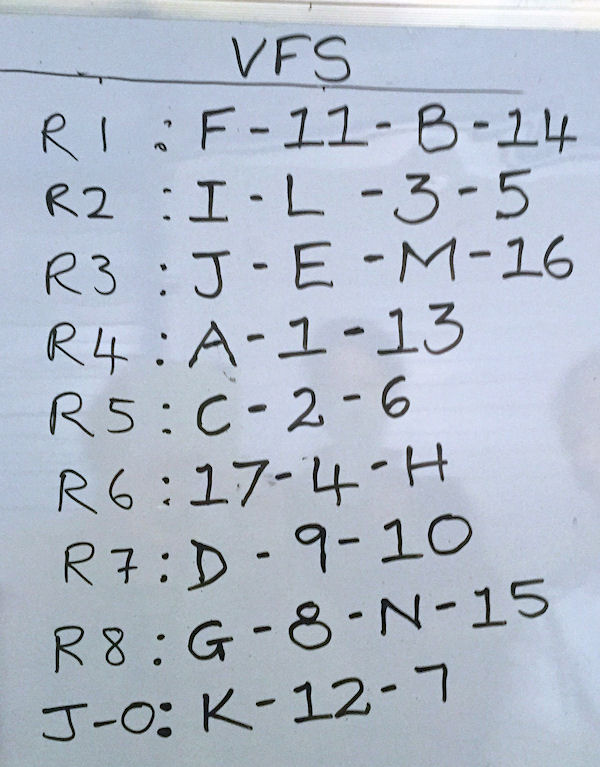 VFS
R1 : F-11-B-14
R2 : I-L-3-5
R3 : J-E-M-16
R4 : A-1-13
R5 : C-2-6
R6 : 17-4-H
R7 : D-9-10
R8 : G-8-N-15
J-O: K-12-7